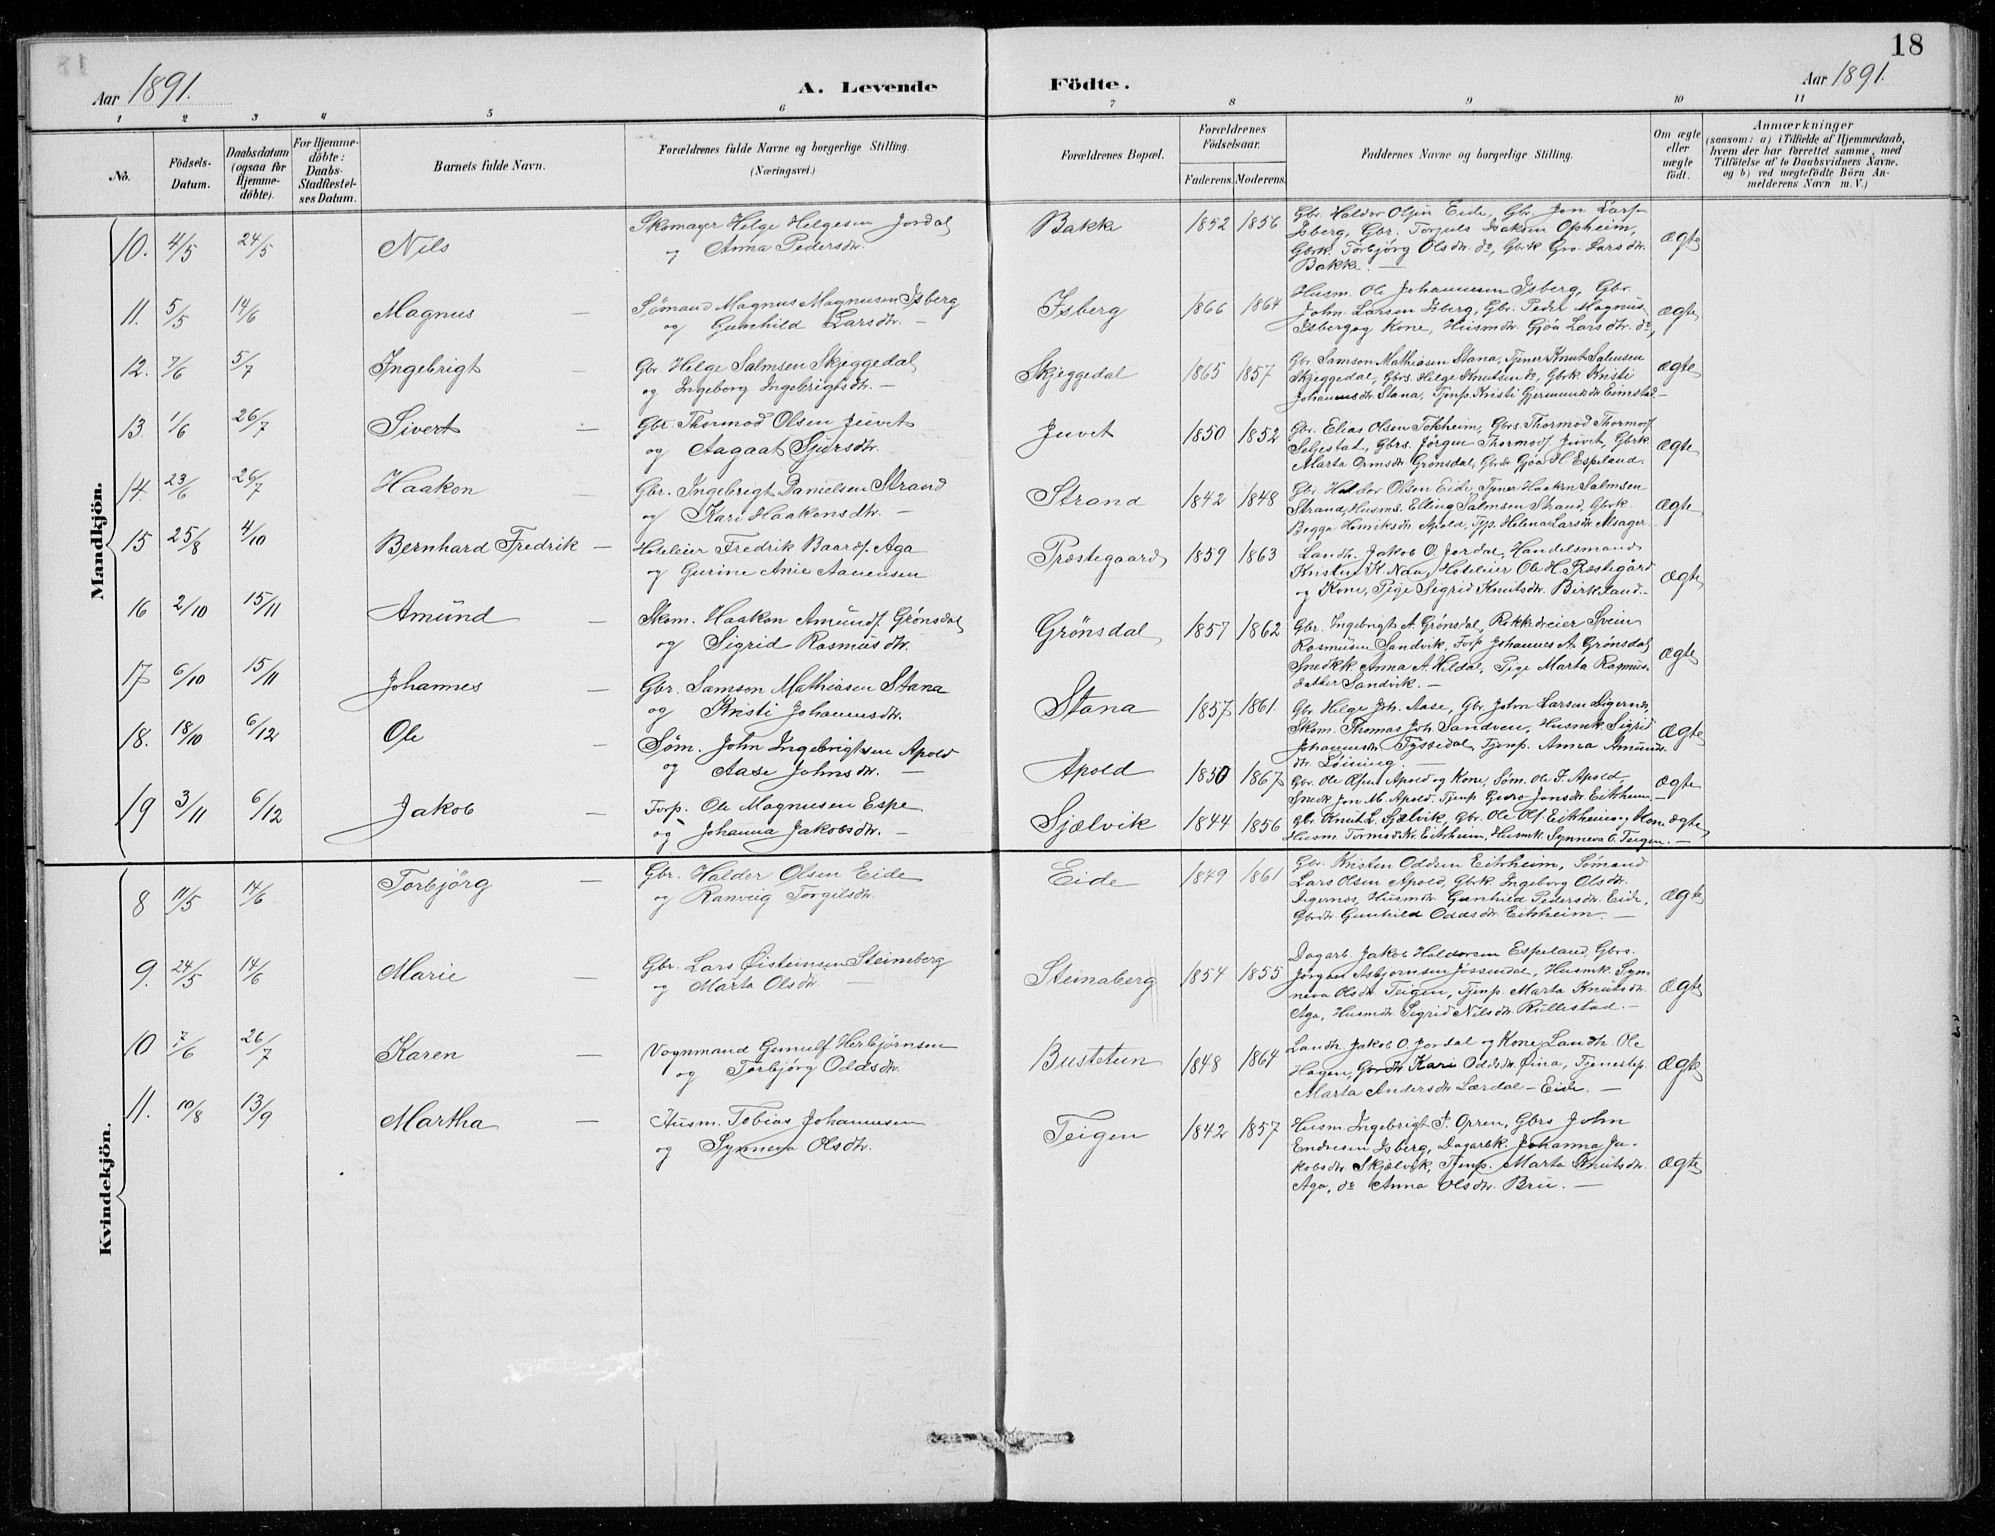 18
Aar 1891. A. Levende Födte. Aar 1891.
1 2 3 4 5 6 7 8 9 10 11
No. Födsels-Datum. Daabsdatum (ogsaa för Hjemmedöbte). For Hjemmedöbte: Daabs-Stadfæstelses Datum. Barnets fulde Navn. Forældrenes fulde Navne og borgerlige Stilling. (Næringsvei.) Forældrenes Bopæl. Forældrenes Födselsaar. Faderens. Moderens. Faddernes Navne og borgerlige Stilling. Om ægte eller uægte födt. Anmærkninger (saasom: a) i Tilfælde af Hjemmedaab, hvem der har forrettet samme, med Tilföielse af to Daabsvidners Navne. og b) ved uægtefödte Börn Anmelderens Navn m. V.)
Mandkjön.
10. 4/5 24/5 Nils Skomager Helge Helgesen Jordal Bakke 1852 1856 Gbr. Haldor Olsen Eide, Gbr. Jon Lars-
og Anna Pedersdtr. Isberg, Gbr. Torjuls Isaksen Opheim, ægte
Gbrk. Torbjörg Olsdtr. do, Gbrk Gro Larsdtr.
Bakke. —
11. 5/5 14/6 Magnus — Sømand Magnus Magnusen Isberg Isberg 1866 1864 Husm. Ole Johannesen Isberg, Gbr.
og Gunhild Larsdtr. — John Larsen Isberg, Gbr. Peder Magnus- ægte
Isberg og Kone, Husmdtr Gjøa Larsdtr. do,
12. 7/6 5/7 Ingebrigt — Gbr. Helge Salmsen Skjeggedal Skjeggedal 1865 1857 Gbr. Samson Mathiasen Stana, Tjener Knut Salmsen
og Ingeborg Ingebrigtsdtr. — Skjeggedal, Gbrs. Helge Knutsen do, Gbrk. Kristi ægte
Johannesdtr. Stana, Tjenp. Kristi Gjermundsdtr Eimstad —
13. 1/6 26/7 Sivert — Gbr. Thormod Olsen Juvet Juvet 1850 1852 Gbr. Elias Olsen Tokheim, Gbrs. Thormod Thormods.
og Aagaat Sjursdtr. Seljestad, Gbrs. Jörgen Thormods. Juvet, Gbrk ægte
Marta Ormsdtr Grönsdal, Gbrdtr Gjøa H. Espeland.
14. 23/6 26/7 Haakon — Gbr. Ingebrigt Danielsen Strand Strand 1842 1848 Gbr. Haldor Olsen Eide, Tjener Haakon Salmsen
og Kari Haakonsdtr. — Strand, Husms. Elling Salmsen Strand, Gbrk ægte
Begga Henriksdtr Apold, Tjp. Helena Larsdtr Mæager
15 25/8 4/10 Bernhard Fredrik — Hoteleier Fredrik Baards. Aga Præstegaard 1859 1863 Landh. Jakob O. Jordal, Handelsmand
og Gurine Anie Aanensen Kristen K. Naa, Hoteleier Ole H. Præstegård ægte
og Kone, Pige Sigrid Knutsdtr. Birkeland. —
16 2/10 15/11 Amund — Skom. Haakon Amunds. Grönsdal Grönsdal 1857 1862 Gbr. Ingebrigt A. Grönsdal, Rokkedreier Svein
og Sigrid Rasmusdtr. Rasmusen Sandvik, Forp. Johannes A. Grönsdal ægte
Snedkk. Anna A. Hildal, Pige Marta Rasmus-
datter Sandvik. —
17 6/10 15/11 Johannes — Gbr. Samson Mathiasen Stana Stana 1857 1861. Gbr. Helge Joh. Aase, Gbr. John Larsen Digernes,
og Kristi Johannesdtr. Skom. Thomas Joh. Sandven, Husmk Sigrid ægte
Johannesdtr Tyssedal, Tjenp. Anna Amunds-
dtr. Löining. —
18. 18/10 6/12 Ole — Søm. John Ingebrigtsen Apold Apold 1850 1867 Gbr. Ole Olsen Apold og Kone, Søm. Ole J. Apold, ægte
og Aase Johnsdtr. — Snedk Jon M. Apold, Tjenp Guro Jonsdtr Eitrheim —
19 3/11 6/12 Jakob — Forp. Ole Magnusen Espe Sjælvik 1844 1856 Gbr. Knut L. Sjælvik, Gbr. Ole Ols. Eitrheim og Kone ægte
og Johanna Jakobsdtr. — Husm. Tormod Kr. Eitrheim, Husmk. Synneva O. Teigen. —
Kvindekjön.
8 11/5 14/6 Torbjörg — Gbr. Haldor Olsen Eide Eide 1849 1861 Gbr. Kristen Oddsen Eitrheim, Sømand
og Ranveig Torgilsdtr. Lars Olsen Apold, Gbrk. Ingeborg Olsdtr. ægte
Digernes, Husmdtr Gunhild Pedersdtr. Eide,
Gbrdtr Gunhild Oddsdtr. Eitrheim. —
9. 24/5 14/6 Marie — Gbr. Lars Øisteinsen Steinsberg Steinaberg 1854 1855 Dagarb. Jakob Haldorsen Espeland, Gbrs.
og Marta Olsdtr. — Jörgen Asbjørnsen Jössendal, Husmk. Syn- ægte
neva Olsdtr. Teigen, Tjenp. Marta Knutsdtr.
Aga, Husmdtr. Sigrid Nilsdtr. Rullestad. —
10 7/6 26/7 Karen — Vognmand Gunulf Herbjørnsen Bustetun 1848 1864 Landh. Jakob O. Jordal og Kone, Landh. Ole
og Torbjörg Oddsdtr. Hagen, Gbrdtr Kari Oddsdtr. Øina, Tjenestep. ægte
Marta Andersdtr. Lærdal — Eide. —
11. 10/8 13/9 Martha — Husm. Tobias Johannesen Teigen 1842 1857 Husm. Ingebrigt P. Opren, Gbrs John
og Synneva Olsdtr. Endresen Isberg, Dagarbk. Johanna Ja-
kobsdtr. Skjælvik, Tjenp. Marta Knutsdtr. ægte
Aga, do Anna Olsdtr. Bru. —